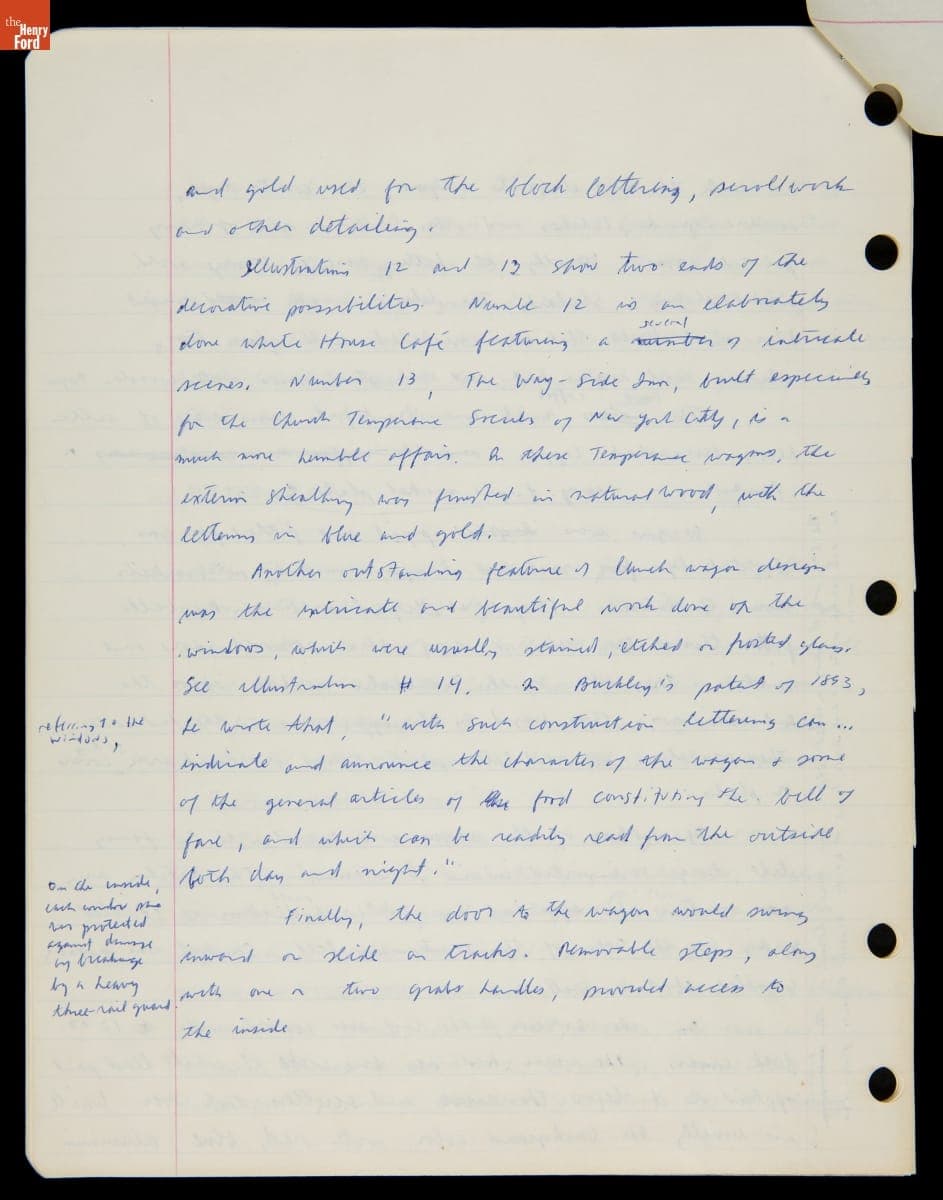 the
Henry
Ford
and gold used for the block lettering, scrollwork
and other detailing.
Illustrations 12 and 13 show two ends of the
decorative possibilities Number 12 is an elaborately
several
done White House Café featuring a number of intricate
scenes. Number 13, The Way-Side Inn, built especially
for the Church Temperance Society of New York City, is a
much more humble affair. In these Temperance wagons, the
exterior sheathing was finished in natural wood, with the
lettering in blue and gold.
Another outstanding feature of lunch wagon design
was the intricate and beautiful work done on the
windows, which were usually stained, etched or frosted glass.
See illustration # 14. In Buckley's patent of 1893,
referring to the
windows,
he wrote that, "with such construction lettering can...
indicate and announce the character of the wagon & some
of the general articles of food constituting the bill of
fare, and which can be readily read from the outside
both day and night."
On the inside,
each window pane
was protected
against damage
by breakage
by a heavy
three-rail guard.
Finally, the door to the wagon would swing
inward or slide on tracks. Removable steps, along
with one or two grab handles, provided access to
the inside